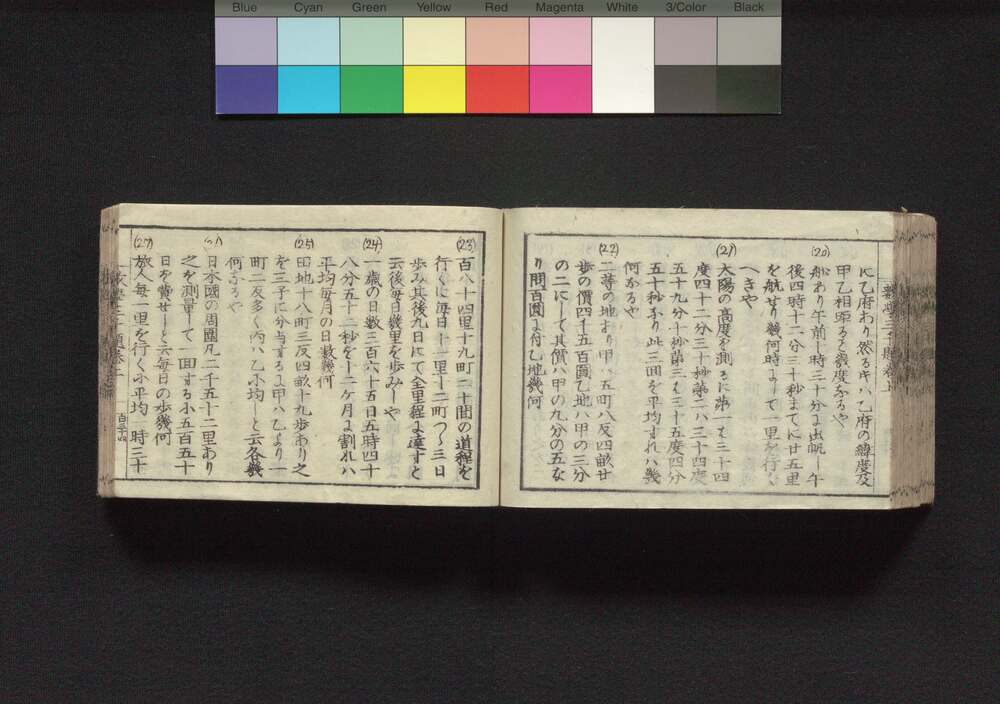 Blue Cyan Green Yellow Red Magenta White 3/Color Black
に乙府あり然るキハ乙府の緯度及
甲乙相距る幾度なるや
(20)
船あり午前十時三十分に出帆し午
後四時十二分三十秒まてに廿五里
を航せり幾何時にして一里を行く
へきや
(21)
太陽の高度を測るに第一ハ三十四
度四十二分三十秒第二ハ三十四度
五十九分十秒第三ハ三十五度四分
五十秒なり此三回を平均すれハ幾
何なるや
(22)
二等の地あり甲ハ五町八反四畝廿
歩の價四千五百圓乙地ハ甲の三分
の二にして其價ハ甲の九分の五な
り問百圓に付乙地幾何
(23)
百八十四里十九町二十間の道程を
行くに毎日十一里十二町つゝ三日
歩み其後九日にて全里程に達すと
云後毎日幾里を歩みしや
(24)
一歳の日数三百六十五日五時四十
八分五十二秒を十二ケ月に割れハ
平均毎月の日数幾何
(25)
田地十八町三反四畝十九歩あり之
を三子に分与するに甲ハ乙より一
町二反多く丙ハ乙に均しと云各幾
何なるや
日本國の周圍凡二千五十二里あり
之を測量して一回するに五百五十
日を費せしと云毎日の歩幾何
(27)
旅人毎一里を行くに平均一時三十